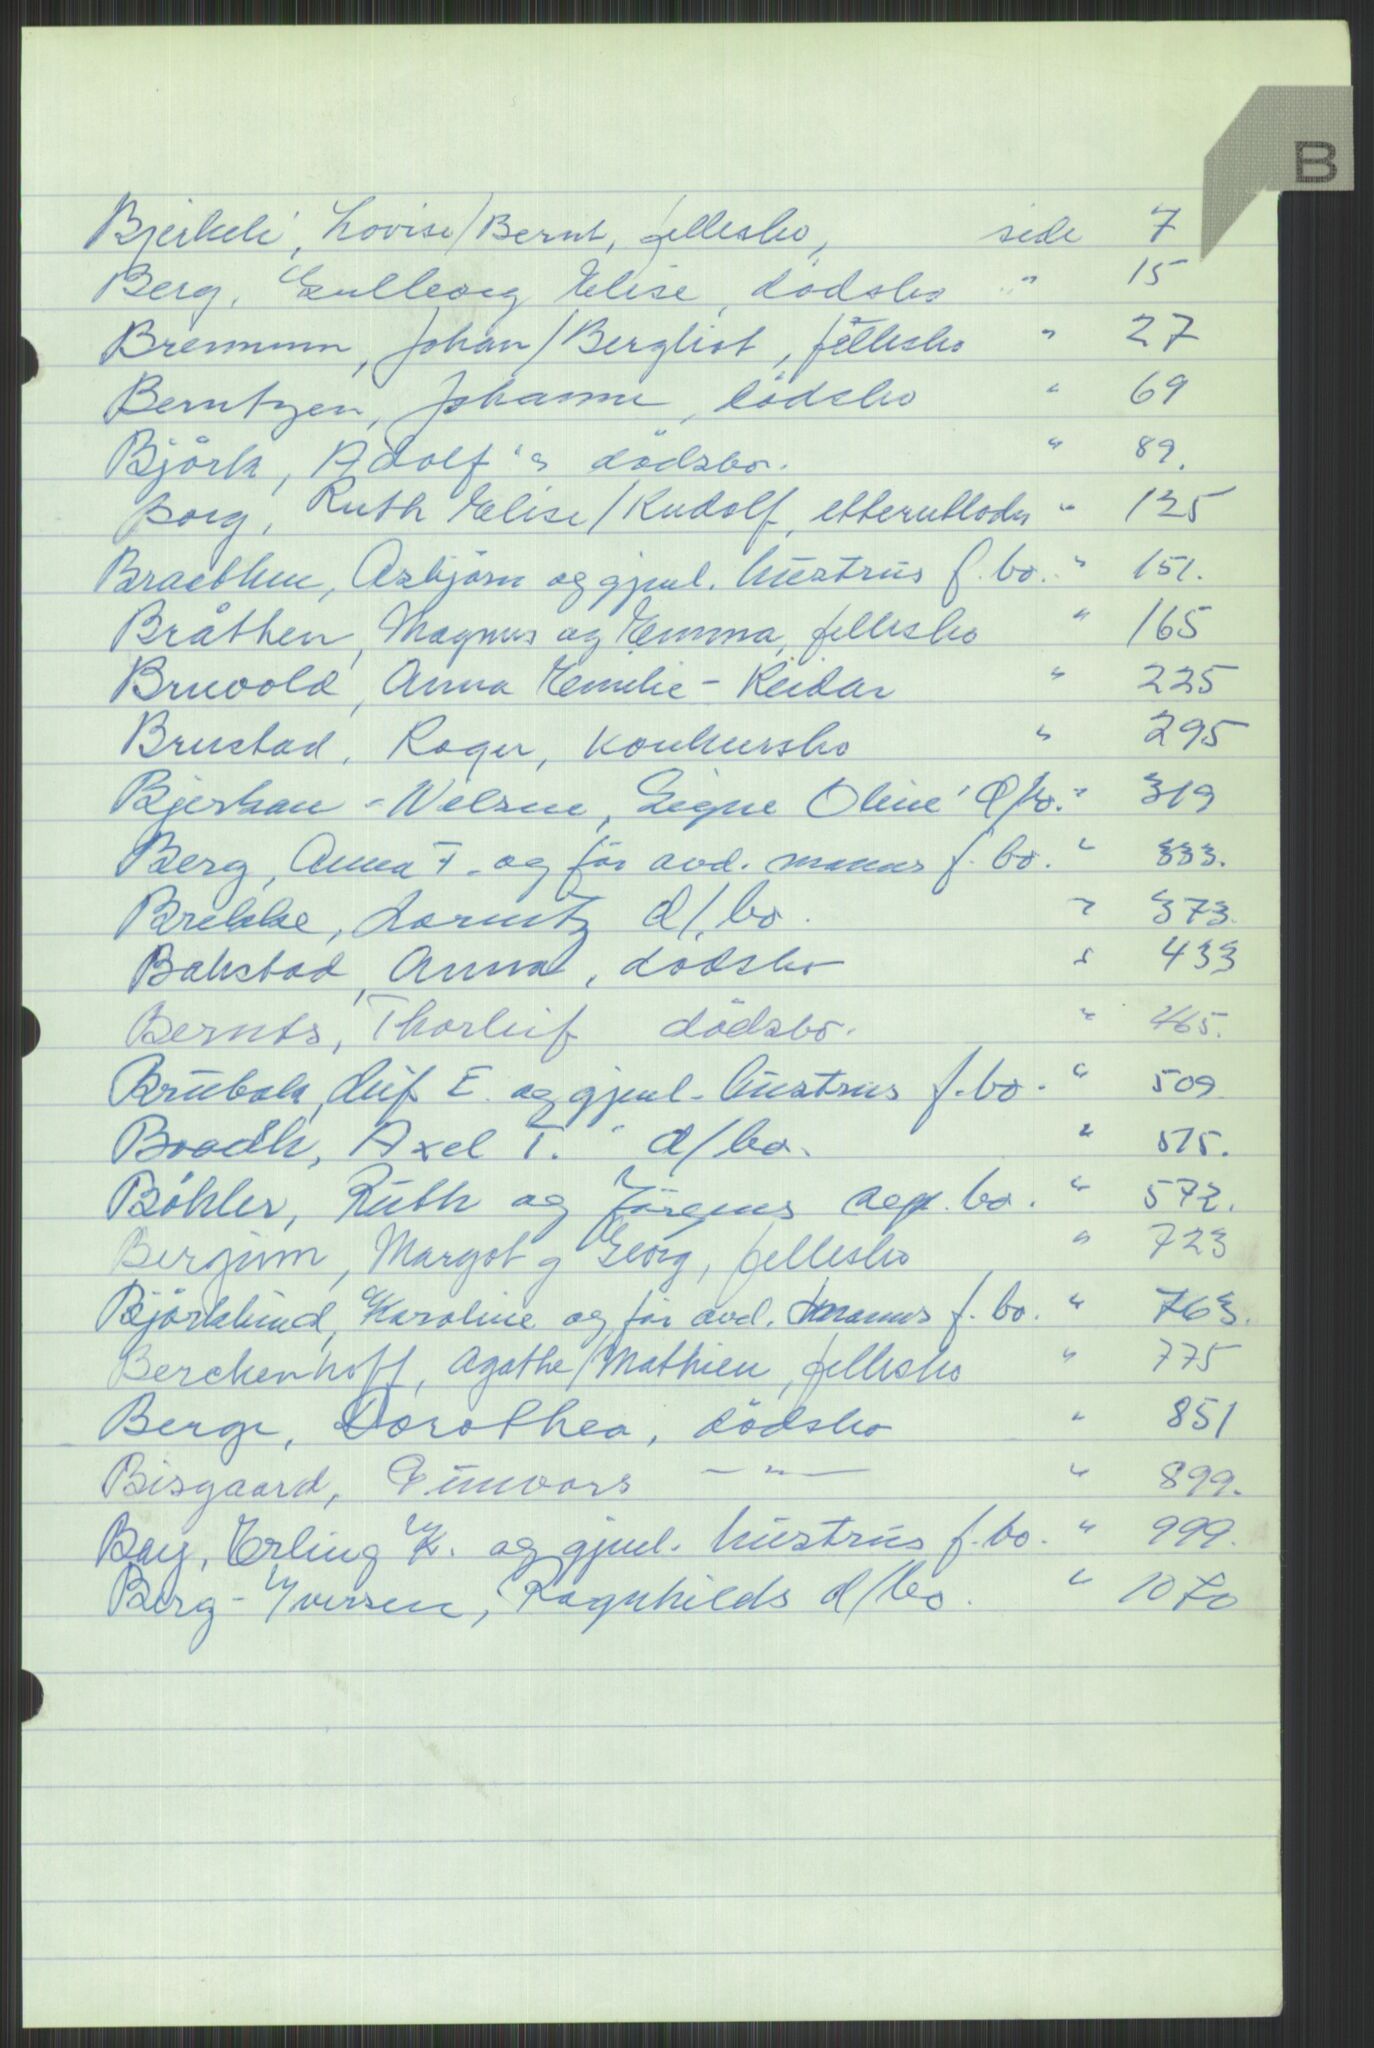 B
Bjerkeli, Lovise/Bernt, fellesbo, side 7
Berg, Gullborg Elise, dødsbo " 15
Bremnum, Johan/Bergliot, fellesbo " 27
Berntzen, Johanne, dödsbo " 69
Björk, Adolf's dödsbo. " 89.
Borg, Ruth Elise/Rudolf, etterutlodn " 125
Braathen, Asbjörn og gjenl. hustrus f. bo. " 151.
Bråthen, Magnus og Emma, fellesbo " 165
Bruvold, Anna Emilie - Reidar " 225
Brustad, Roger, konkursbo " 295
Bjerkan - Nelsen, Signe Oline d/bo. " 319
Berg, Anna F. og før avd. manns f. bo. " 333.
Brekke, Lorentz d/bo. " 373.
Bakstad, Anna, dødsbo " 433
Bernts, Thorleif dödsbo. " 465.
Brubak, Leif E. og gjenl. hustrus f. bo. " 509
Axel T. d/bo. " 515.
Böhler, Ruth og Jörgens sep. bo. " 572.
Bergum, Margot g Georg, fellesbo " 723
Björklund, Karoline og før avd. manns f. bo. " 763.
Berckenhoff, Agathe/Mathieu, fellesbo " 775
Berge, Dorothea, dödsbo " 851
Bisgaard, Gunvors — " — " 899.
Bay, Erling K. og gjenl. hustrus f. bo. " 999.
Berg - Iversen, Ragnhilds d/bo. " 1070